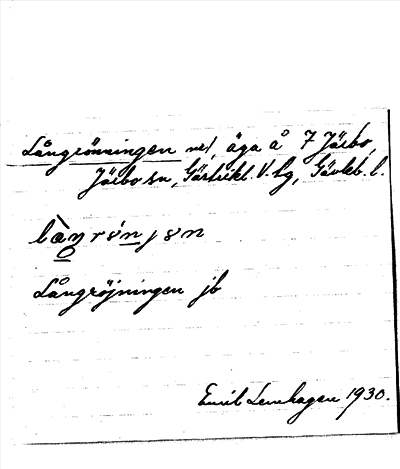 Långrönningen äga å 7 Järbo,
Järbo sn, Gästrikl. V. tg, Gävleb. l.
Långröjningen jb
Emil Lenhagen 1930.